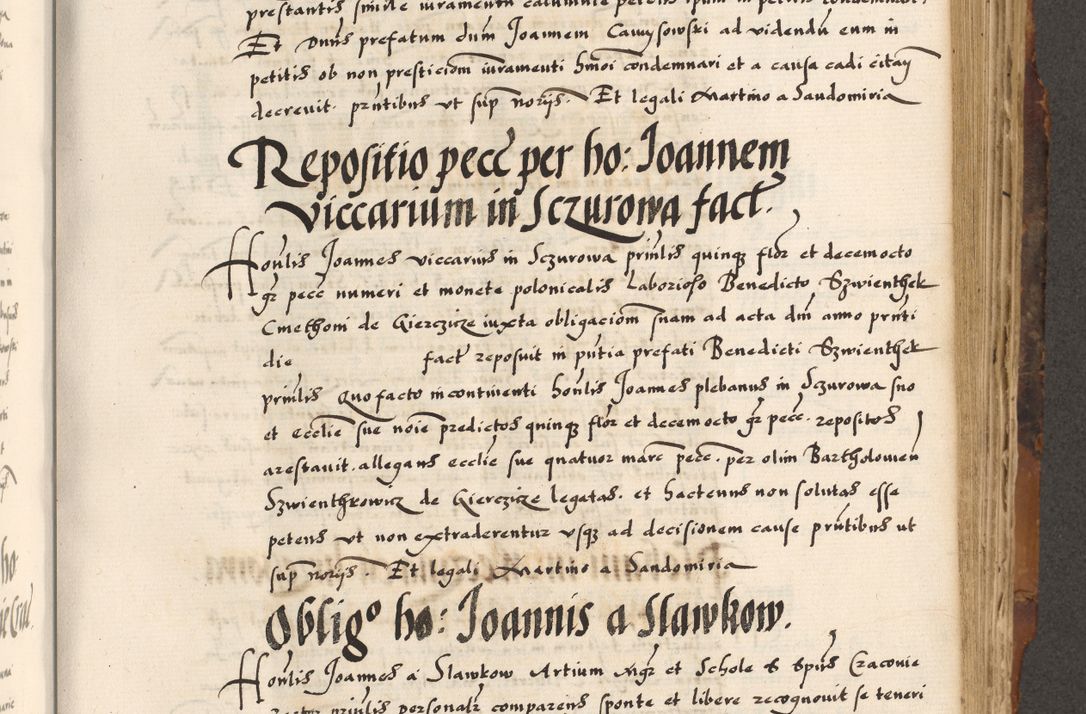 Et Dnūs prefatum dum Joannem Cawysowski ad videndū eum in
petitis ob non presticiom̄ iuramenti hm̄oi condemnari et a causa cadi citan̄
decreuit. prn̄tibus vt sup̄ nōrijs. Et legali Martino a Sandomiria
Repositio pecc̄ per ho: Joannem
viccarium in Sczurowa fact̄.
Hon̄lis Joannes viccarius in Sczurowa prin̄lis quinq̨ flor̄ et decemocto
gr̄ pecc̄ numeri et monete polonicalis Laborioso Benedicto Szwienthek
Cmethoni de Gierczicze iuxta obligaciom̄ suam ad acta dni anno prn̄ti
die fact̄ reposuit in pn̄tia prefati Benedicti Szwienthek
prin̄lis Quo facto incontinenti hon̄lis Joannes plebanus in Sczurowa suo
et ecclīe sue noīe predictos quinq̨ flor̄ et decemocto gr̄ pecc̄. repositos
arestauit. allegans ecclīe sue quatuor marc̄ pecc̄. per olim Bartholomeū
Szwienthkowicz de Gierczicze legatas. et hactenus non solutas esse
petens vt non extraderentur vsq̨ ad decisionem cause prn̄tibus ut
sup̄ nōrijs. Et legali Martino a Sandomiria
Oblig° ho: Joannis a Slawkow.
Hon̄lis Joannes a Slawkow Artium Mgr̄ et Schole S Sp̄us Cracouie
prin̄lis personalr̄ comparens sponte et libere recognouit se teneri